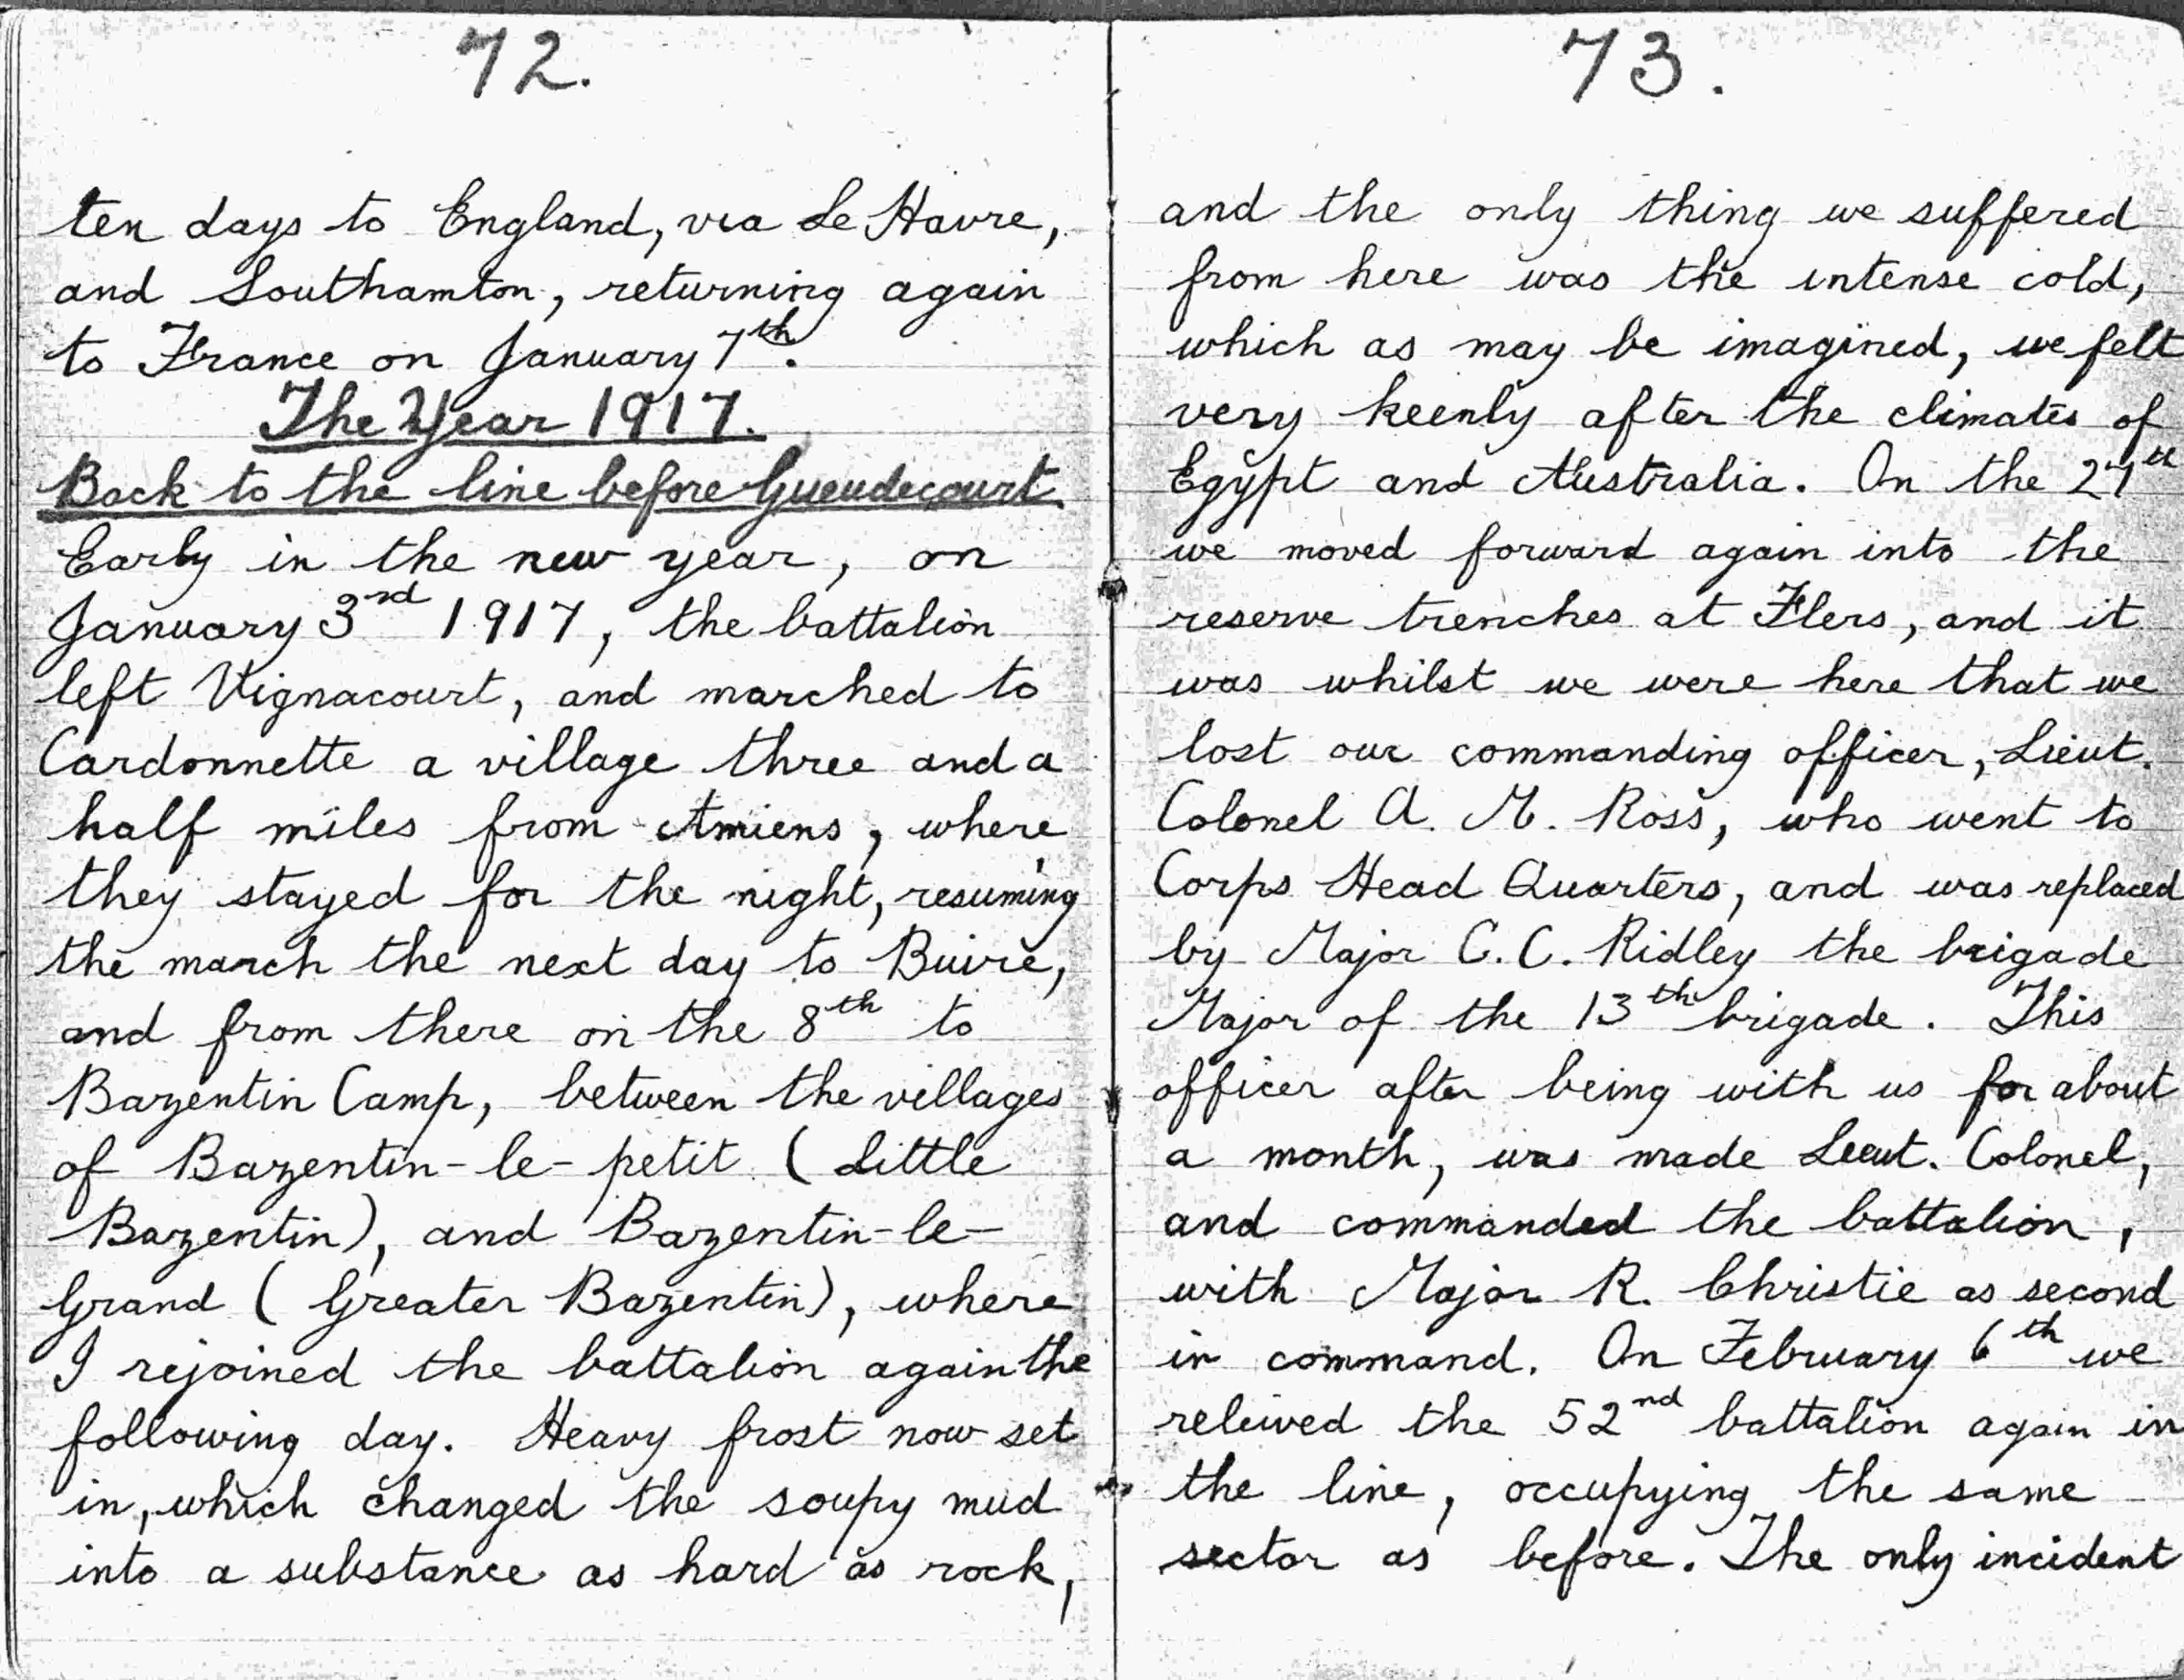 72.
ten days to England, via Le Havre,
and Southamton, returning again
to France on January 7th.
The Year 1917.
Back to the line before Gueudecourt.
Early in the new year, on
January 3rd 1917, the battalion
left Vignacourt, and marched to
Cardonnette a village three and a
half miles from Amiens, where
they stayed for the night, resuming
the march the next day to Buire,
and from there on the 8th to
Bazentin Camp, between the villages
of Bazentin-le-petit (Little
Bazentin), and Bazentin-le-
Grand (Greater Bazentin), where
I rejoined the battalion again the
following day. Heavy frost now set
in, which changed the soupy mud
into a substance as hard as rock,
73.
and the only thing we suffered
from here was the intense cold,
which as may be imagined, we felt
very keenly after the climates of
Egypt and Australia. On the 27th
we moved forward again into the
reserve trenches at Flers, and it
was whilst we were here that we
lost our commanding officer, Lieut.
Colonel A. M. Ross, who went to
Corps Head Quarters, and was replaced
by Major C. C. Ridley the brigade
Major of the 13th brigade. This
officer after being with us for about
a month, was made Leiut. Colonel,
and commanded the battalion,
with Major R. Christie as second
in command. On February 6th we
releived the 52nd battalion again in
the line, occupying the same
sector as before. The only incident